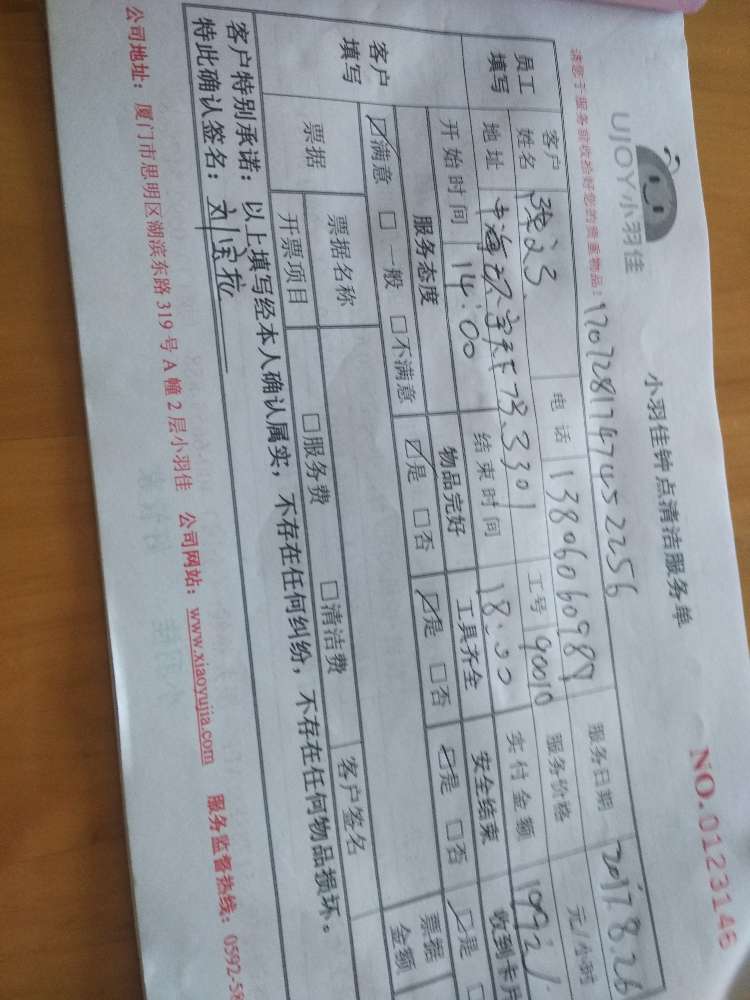 UJOY小羽佳
小羽佳钟点清洁服务单
NO.0123146
请您于服务前收拾好您的贵重物品!
员工填写 客户姓名 电话 服务日期 2017.8.26
地址 3301 工号 90010 服务价格 元/小时
开始时间 14:00 结束时间 18:00 实付金额
客户填写 服务态度 物品完好 工具齐全 安全结束
☑满意 □一般 □不满意 ☑是 □否 ☑是 □否 ☑是 □否 ☑是
票据 票据名称 □服务费 □清洁费 客户签名 票据金额
开票项目
客户特别承诺:以上填写经本人确认属实,不存在任何纠纷,不存在任何物品损坏。
特此确认签名:
公司地址:厦门市思明区湖滨东路319号A幢2层小羽佳 公司网站:www.xiaoyujia.com 服务监督热线:0592-58